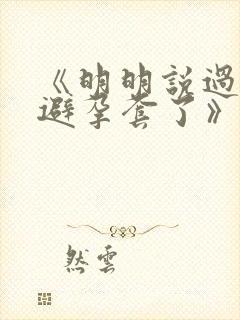 《明明説過
避孕套了》
然雲